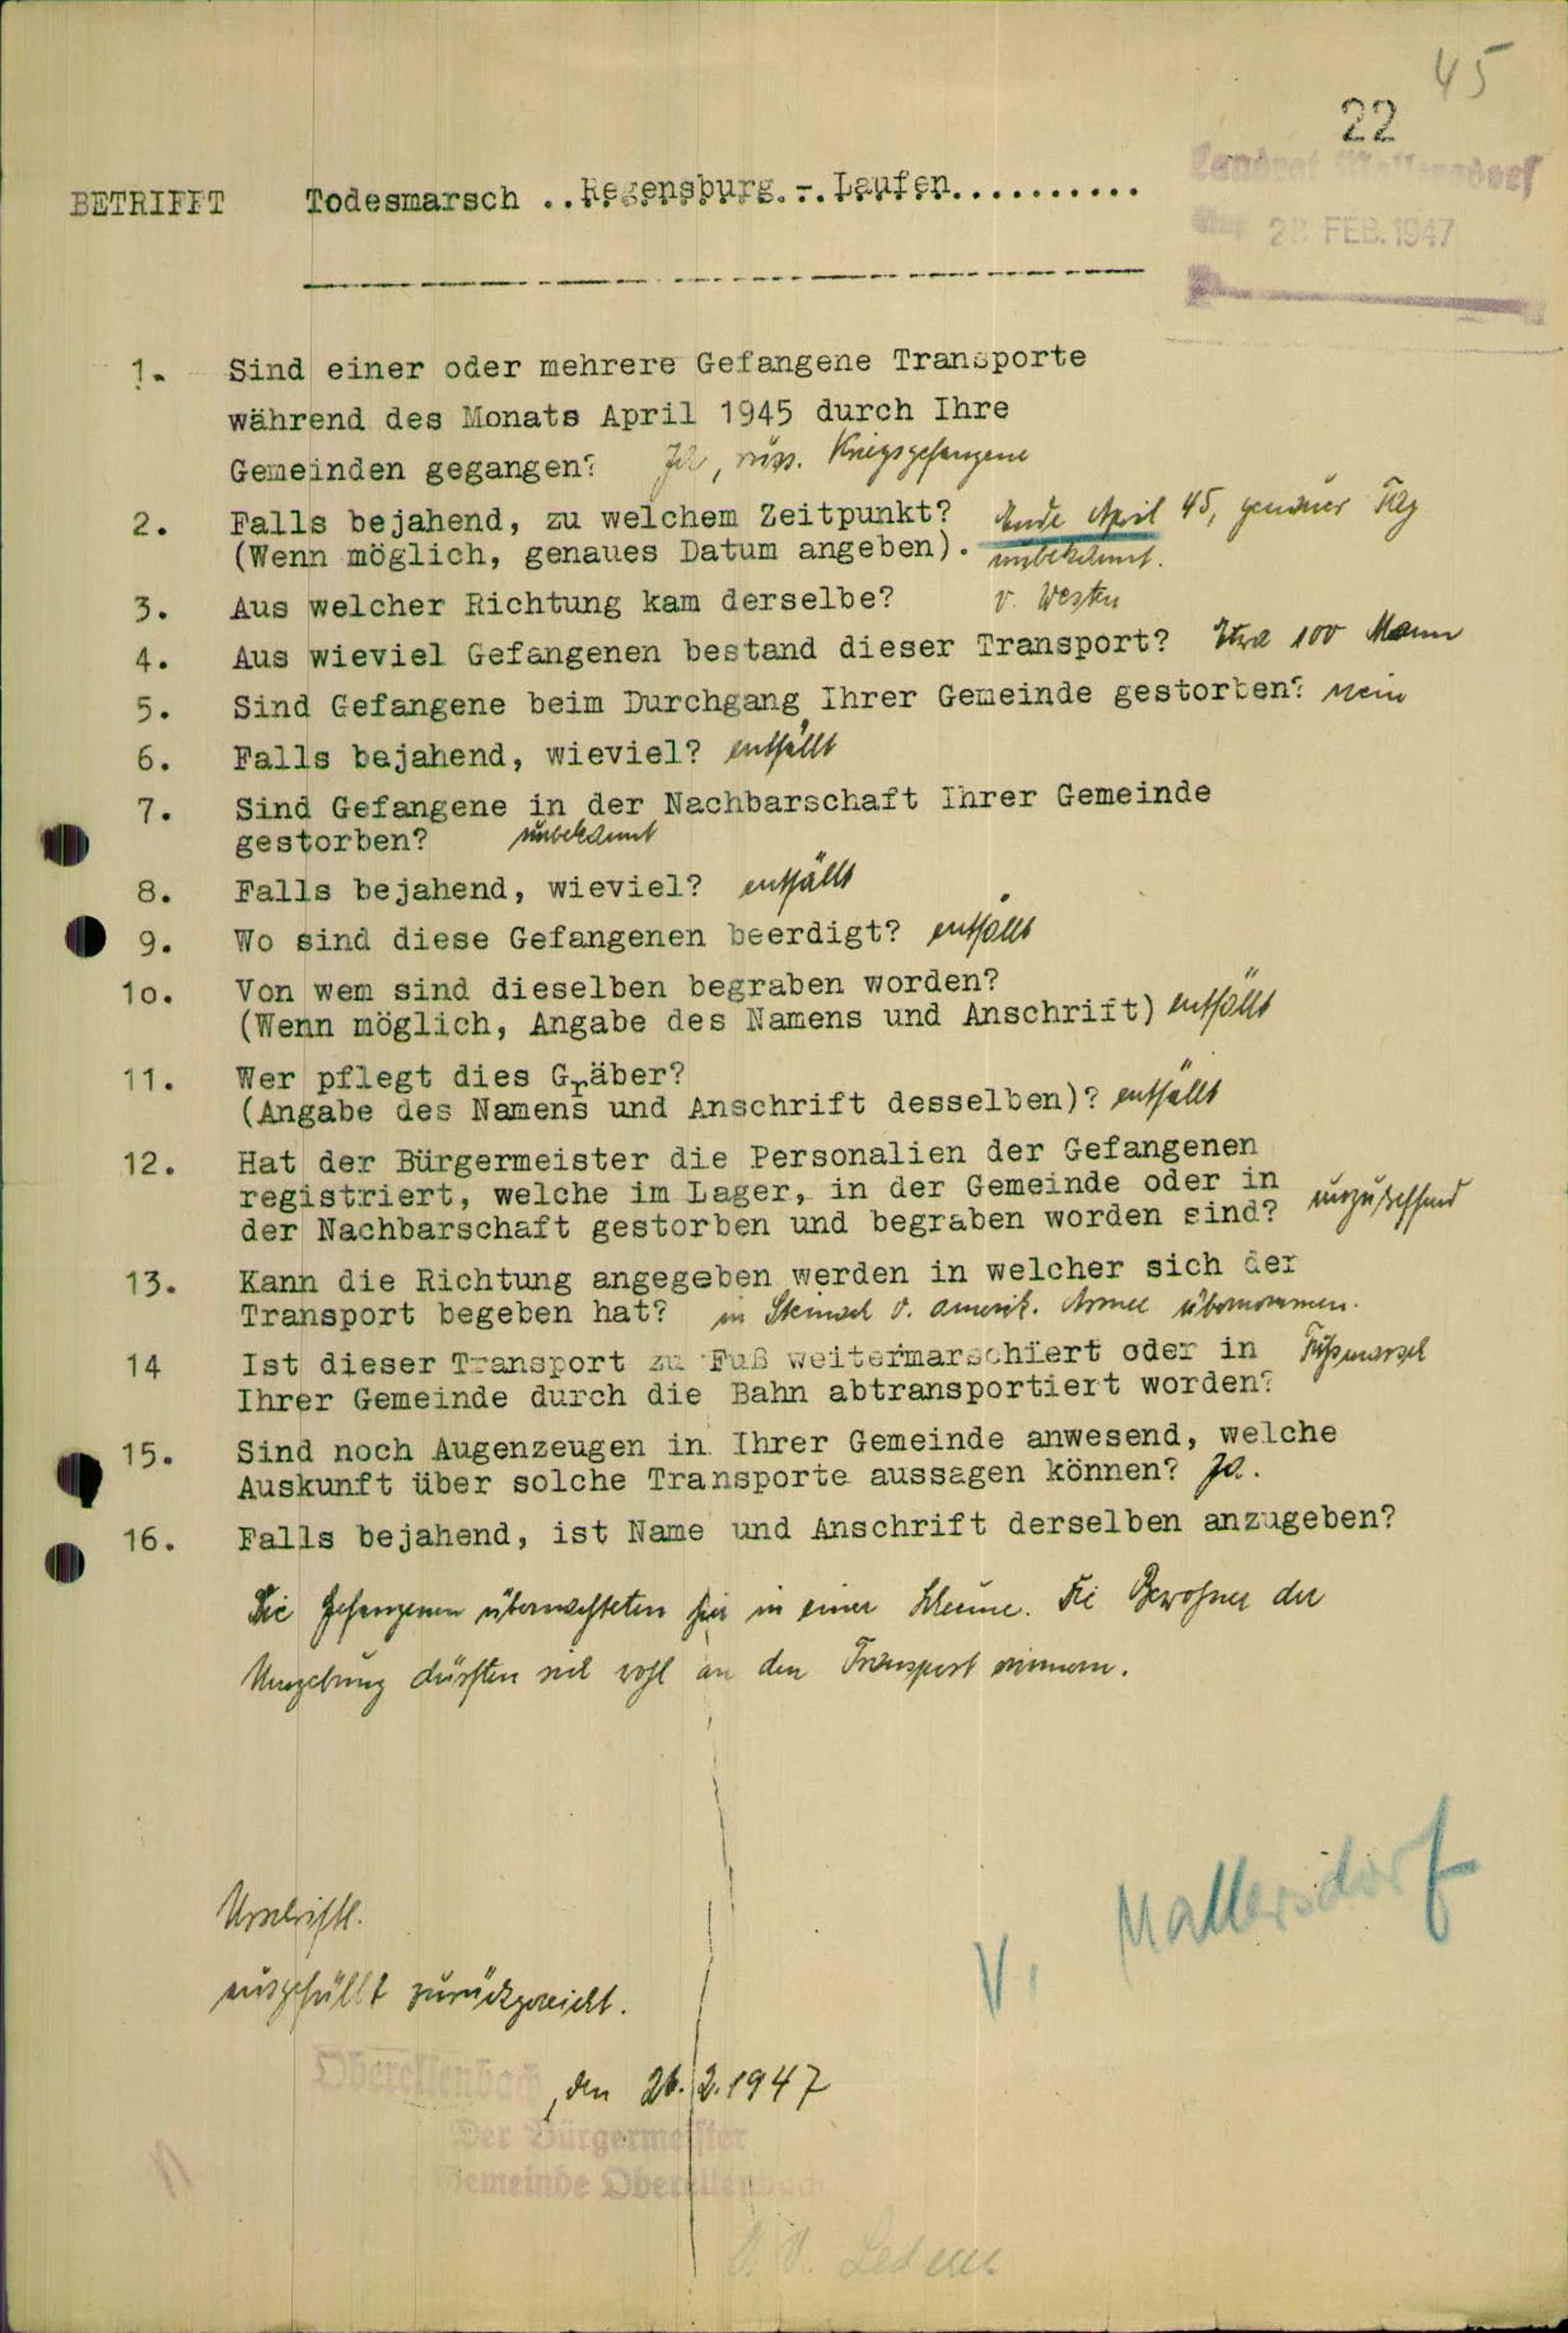 45
22
Landrat Mallersdorf
28 FEB. 1947
BETRIFFT Todesmarsch ..Regensburg.-.Laufen..........
1. Sind einer oder mehrere Gefangene Transporte
während des Monats April 1945 durch Ihre
Gemeinden gegangen? Ja, russ. Kriegsgefangene
2. Falls bejahend, zu welchem Zeitpunkt? Ende April 45, genauer Tag
(Wenn möglich, genaues Datum angeben). unbekannt.
3. Aus welcher Richtung kam derselbe? v. Westen
4. Aus wieviel Gefangenen bestand dieser Transport? Etwa 100 Mann
5. Sind Gefangene beim Durchgang Ihrer Gemeinde gestorben? nein
6. Falls bejahend, wieviel? entfällt
7. Sind Gefangene in der Nachbarschaft Ihrer Gemeinde
gestorben? unbekannt
8. Falls bejahend, wieviel? entfällt
9. Wo sind diese Gefangenen beerdigt? entfällt
10. Von wem sind dieselben begraben worden?
(Wenn möglich, Angabe des Namens und Anschrift) entfällt
11. Wer pflegt dies Gräber?
(Angabe des Namens und Anschrift desselben)? entfällt
12. Hat der Bürgermeister die Personalien der Gefangenen
registriert, welche im Lager, in der Gemeinde oder in unzutreffend
der Nachbarschaft gestorben und begraben worden sind?
13. Kann die Richtung angegeben werden in welcher sich der
Transport begeben hat? in v. amerik. Armee übernommen.
14 Ist dieser Transport zu Fuß weitermarschiert oder in Fußmarsch
Ihrer Gemeinde durch die Bahn abtransportiert worden?
15. Sind noch Augenzeugen in Ihrer Gemeinde anwesend, welche
Auskunft über solche Transporte aussagen können? Ja.
16. Falls bejahend, ist Name und Anschrift derselben anzugeben?
Die Gefangenen übernachteten hier in einer Scheune. Die Bewohner der
Umgebung dürften sich wohl an den Transport erinnern.
V. Mallersdorf
Urschriftl.
ausgefüllt zurückgereicht.
Oberellenbach, den 26.2.1947
Der Bürgermeister
Gemeinde Oberellenbach